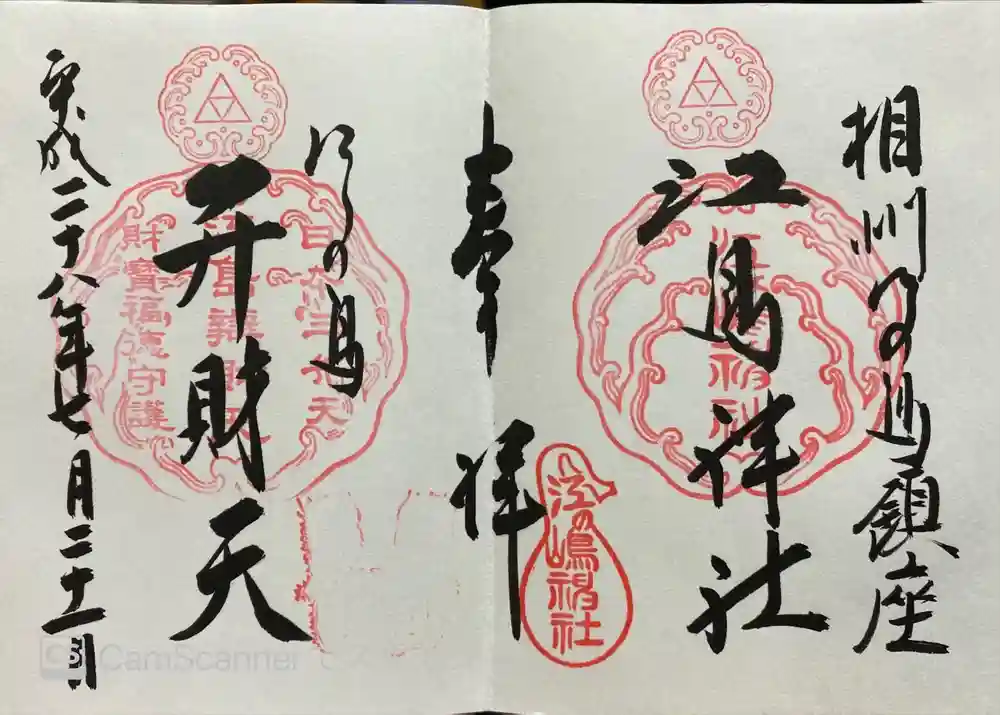 相州江の島鎮座
江島神社
奉拝
江の嶋神社
江の島
弁財天
財寶福徳守護
平成二十八年七月二十一日
CS CamScanner